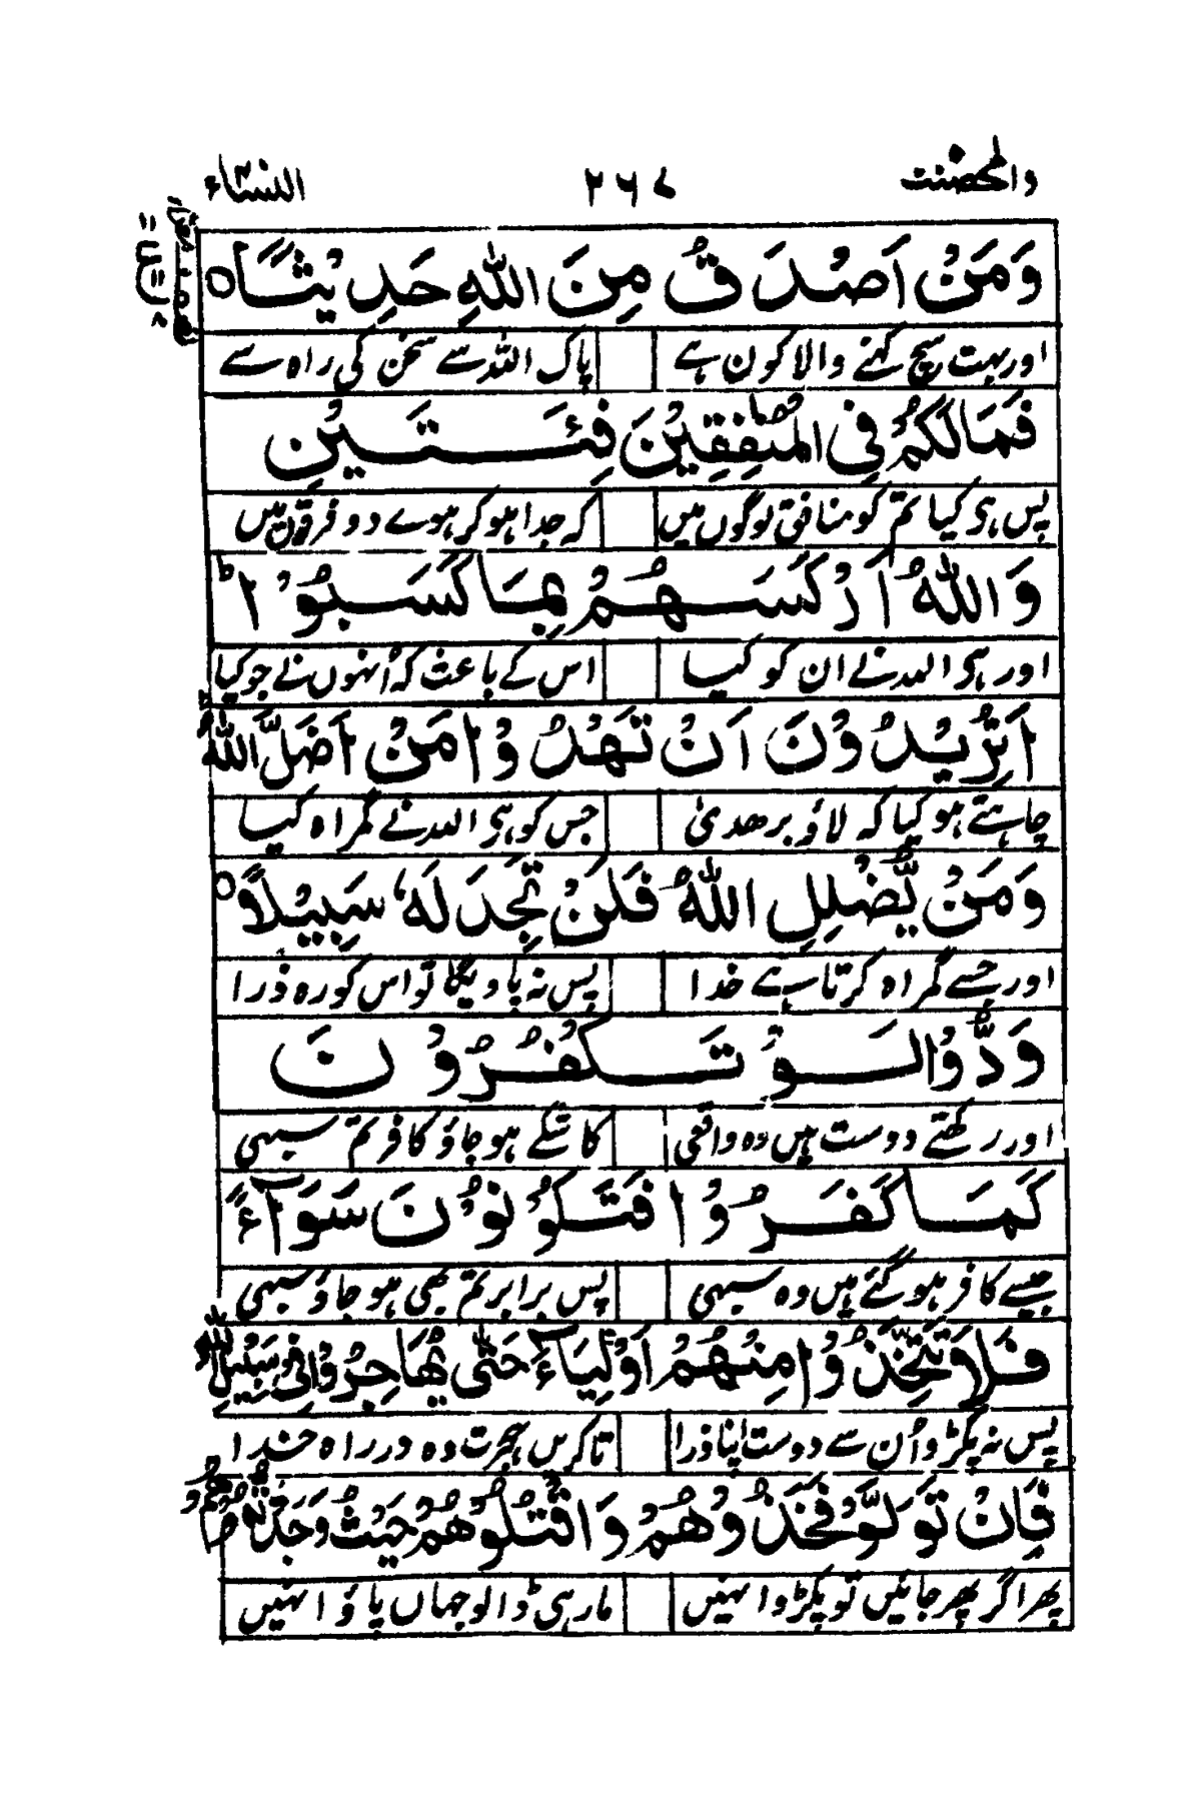 والمحصنت ۲۶۷ النسآء
وَمَنْ اَصْدَقُ مِنَ اللّٰهِ حَدِيْثًا
اور بہت سچ کہنے والا کون ہے پاک اللہ سے سخن کی راہ سے
فَمَا لَكُمْ فِى الْمُنٰفِقِيْنَ فِئَتَيْنِ
پس ہی کیا تم کو منافق لوگوں میں کہ جدا ہو کر ہوے دو فرقوں میں
وَاللّٰهُ اَرْكَسَهُمْ بِمَا كَسَبُوْا ؕ
اور ہی اللہ نے ان کو کیا اس کے باعث کہ اُنہوں نے جو کیا
اَتُرِيْدُوْنَ اَنْ تَهْدُوْا مَنْ اَضَلَّ اللّٰهُ
چاہتے ہو کیا کہ لاؤ بر ھدیٰ جس کو ہی اللہ نے گمراہ کیا
وَمَنْ يُّضْلِلِ اللّٰهُ فَلَنْ تَجِدَ لَهٗ سَبِيْلًا
اور جسے گمراہ کرتا ہے خدا پس نہ پاویگا تو اس کو رہ ذرا
وَدُّوْا لَوْ تَكْفُرُوْنَ
اور رکھتے دوست ہیں وہ واقعی کا تکے ہو جاؤ کافر تم سبھی
كَمَا كَفَرُوْا فَتَكُوْنُوْنَ سَوَآءً
جیسے کافر ہو گئے ہیں وہ سبھی پس برابر تم بھی ہو جاؤ سبھی
فَلَا تَتَّخِذُوْا مِنْهُمْ اَوْلِيَآءَ حَتّٰى يُهَاجِرُوْا فِىْ سَبِيْلِ اللّٰهِ
پس نہ پکڑو اُن سے دوست اپنا ذرا تا کریں ہجرت وہ در راہ خدا
فَاِنْ تَوَلَّوْا فَخُذُوْهُمْ وَاقْتُلُوْهُمْ حَيْثُ وَجَدْتُّمُوْهُمْ
پھر اگر پھر جائیں تو پکڑو انہیں مار ہی ڈالو جہاں پاؤ انہیں